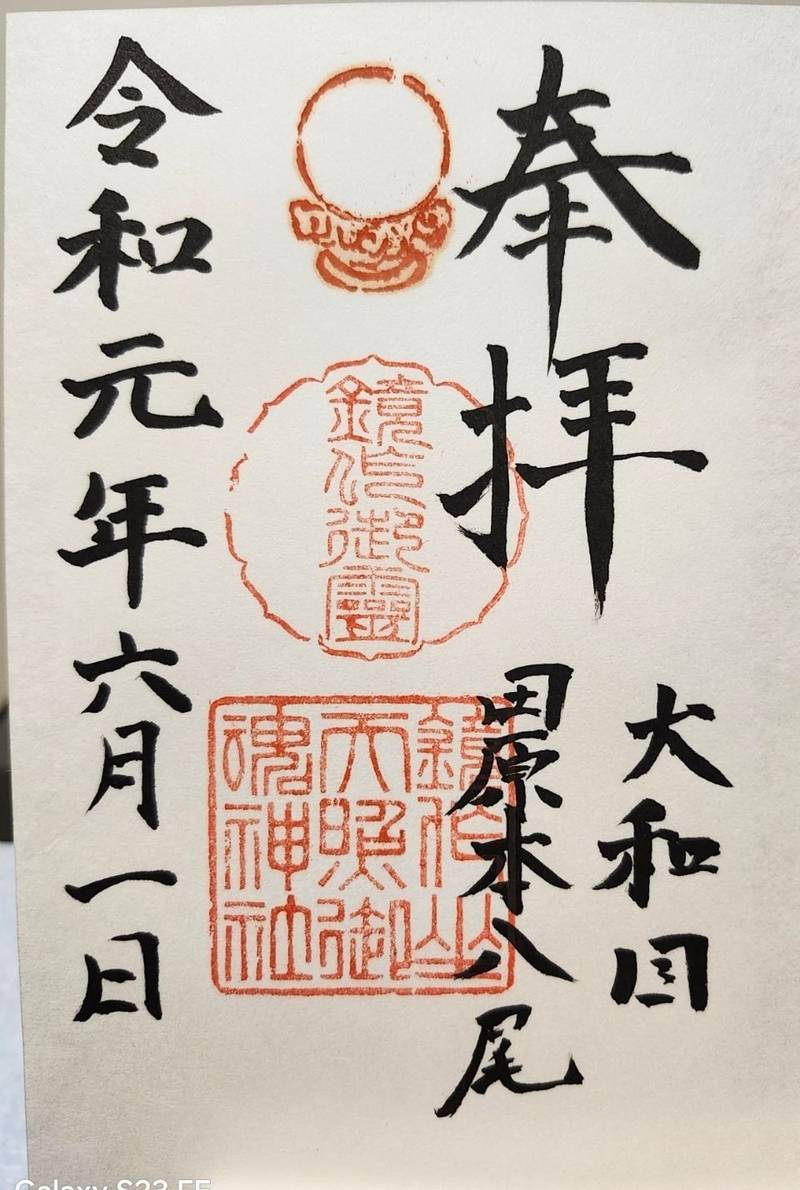 奉拝
大和国
田原本八尾
鏡作御靈
鏡作坐
天照御
魂神社
令和元年六月一日
Galaxy S23 FE